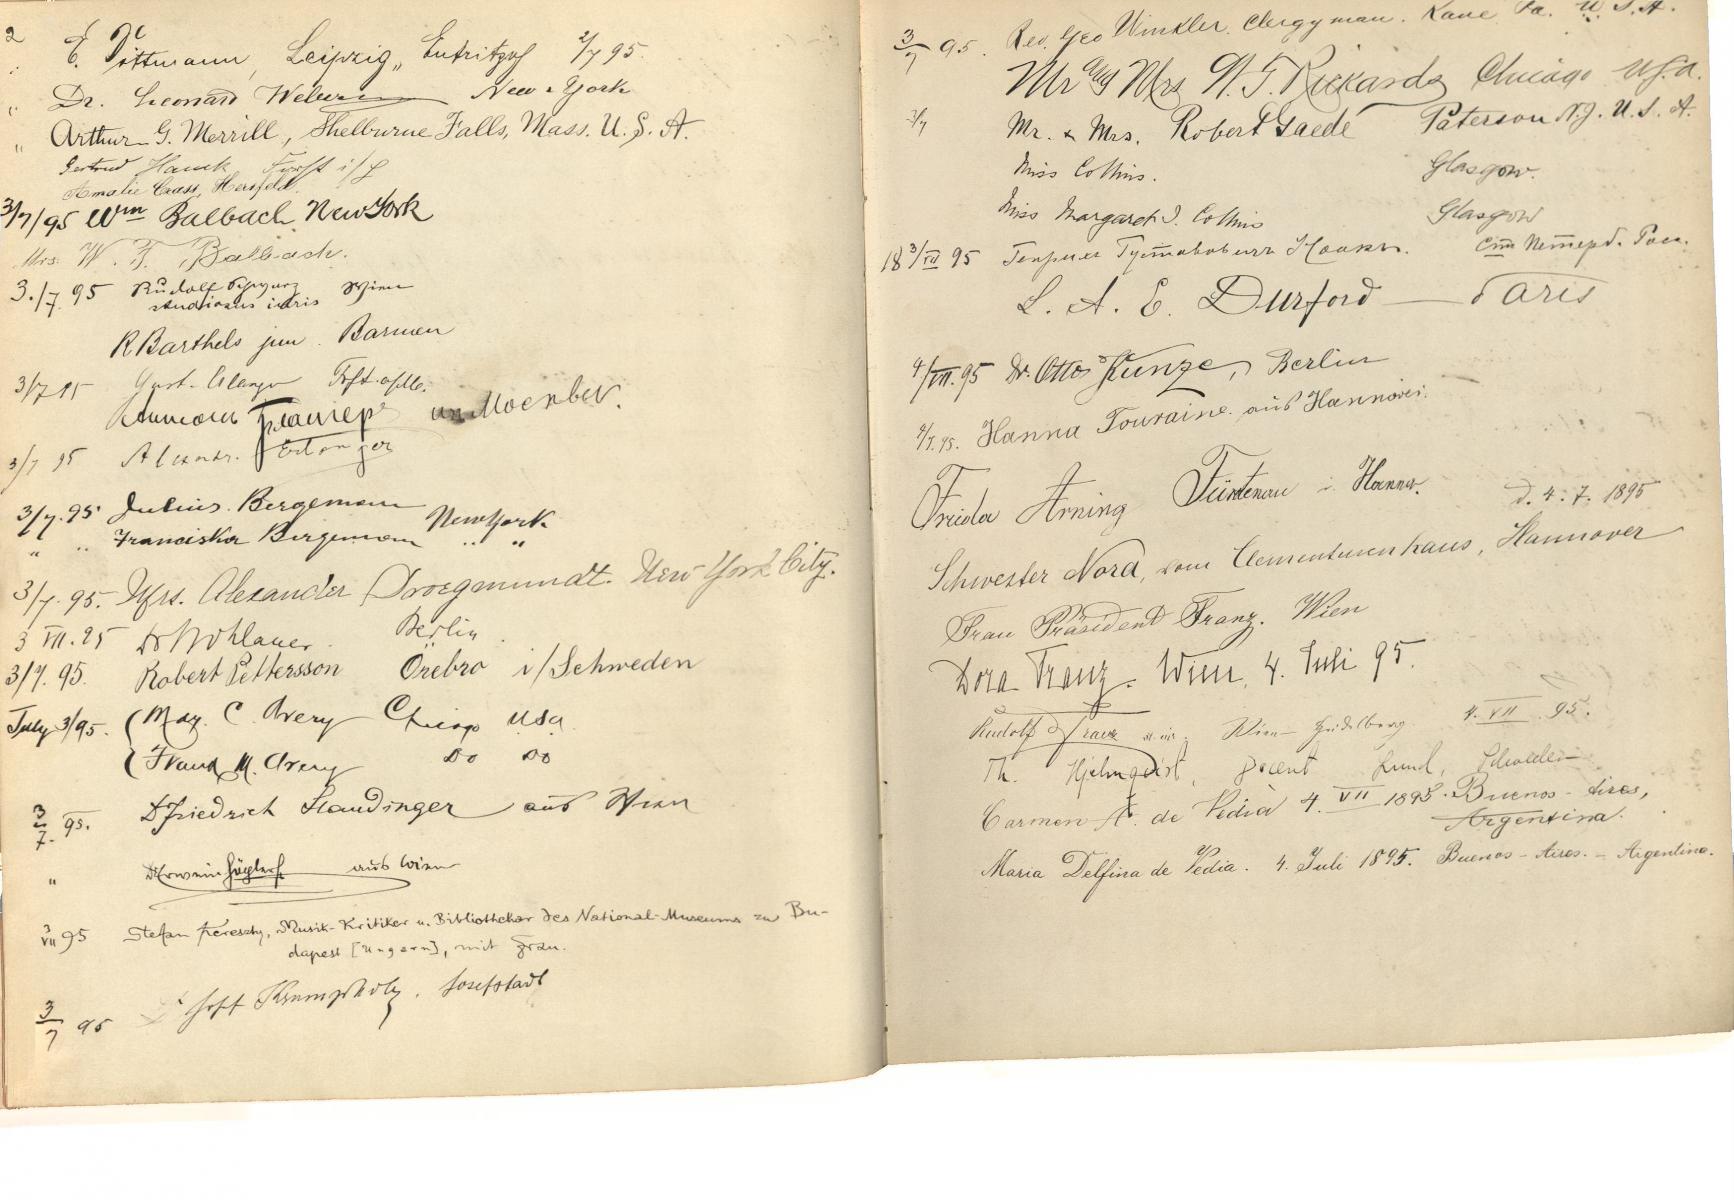 2
E. Dittmann, Leipzig, Eutritzsch 2/7 95
" Dr. Leonard Weber New York
" Arthur G. Merrill, Shelburne Falls, Mass. U.S.A.
Gertrud Hauck Forst i/L
Amalie Crass, Hersfeld.
3/7/95 Wm Balbach New York
Mrs. W. F. Balbach.
3./7. 95 Rudolf Schwarz Wien
studiosus iuris
R Barthels jun. Barmen
3/7 95 Gust. Frkft. a/M.
3/7 95 Alexandr. Erlanger
3/7.95. Julius Bergemann New York
" " Franciska Bergemann " "
3/7. 95. Mrs. Alexander Droegmundt. New York City.
3 VII. 95 Dr Wohlauer Berlin
3/7. 95. Robert Pettersson Örebro i/Schweden
July 3/95. (May. C. Avery Chicago USA
(Frank M. Avery Do Do
3/7. 95. Dr Friedrich Standinger aus Wien
" aus Wien
3/VII 95 Stefan Kereszty, Musik-Kritiker u. Bibliothekar des National-Museums zu Bu-
dapest [Ungarn], mit Frau.
3/7 95 Krumpholz. Josefstadt
3/7 95. Rev. Geo Winkler. Clergyman. Kane Pa. U.S.A.
Mr and Mrs W. G. Rickards Chicago U.S.A.
3/7 Mr. & Mrs. Robert Gaede Paterson N.J. U.S.A.
Miss Collins. Glasgow.
Miss Margaret J. Collins Glasgow
18 3/VII 95 Генрих Густавович
L. A. E. Durford — Paris
4/VII. 95 Dr. Otto Kunze, Berlin
4/7. 95. Hanna Touraine aus Hannover.
Frieda Arning Fürstenau i. Hannov. d. 4. 7. 1895
Schwester Nora, vom Clementinenhaus, Hannover
Frau Präsident Franz. Wien
Dora Franz. Wien, 4. Juli 95.
Rudolf Franz Wien-Heidelberg 4. VII. 95.
Th. Hjelmqvist, Docent Lund, Schweden
Carmen A. de Vedia 4. VII 1895. Buenos-Aires,
Argentina.
Maria Delfina de Vedia. 4. Juli 1895. Buenos-Aires.-Argentina.